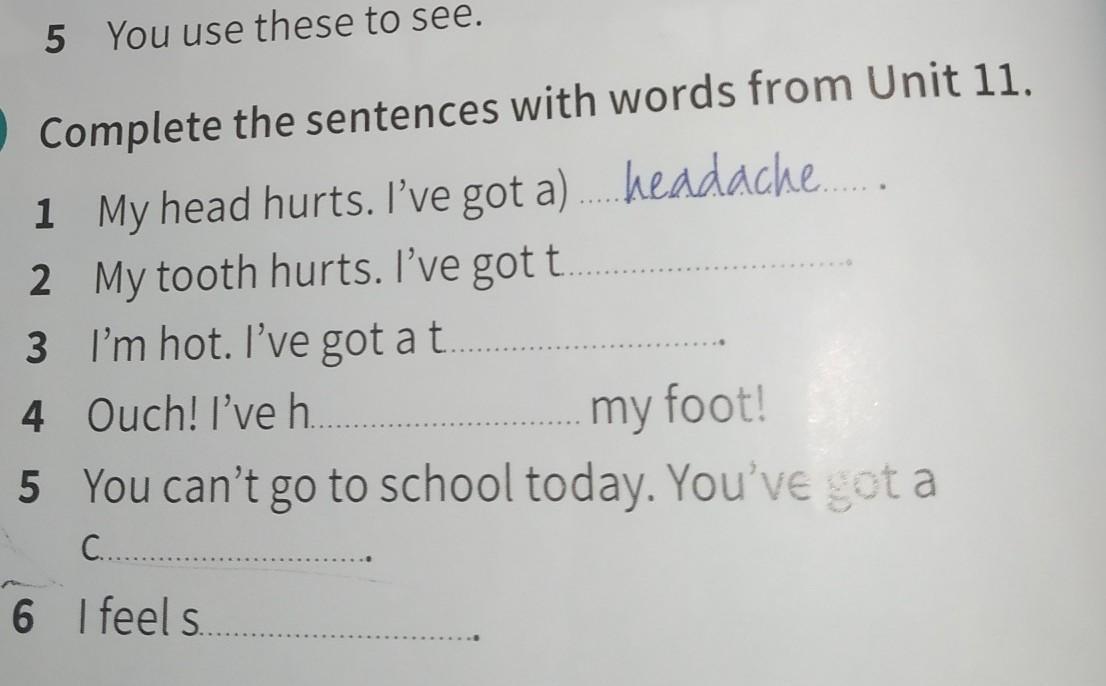 5 You use these to see.
Complete the sentences with words from Unit 11.
1 My head hurts. I've got a) .....headache..... .
2 My tooth hurts. I've got t..............................
3 I'm hot. I've got a t..............................
4 Ouch! I've h.............................. my foot!
5 You can't go to school today. You've got a
c..............................
6 I feel s..............................